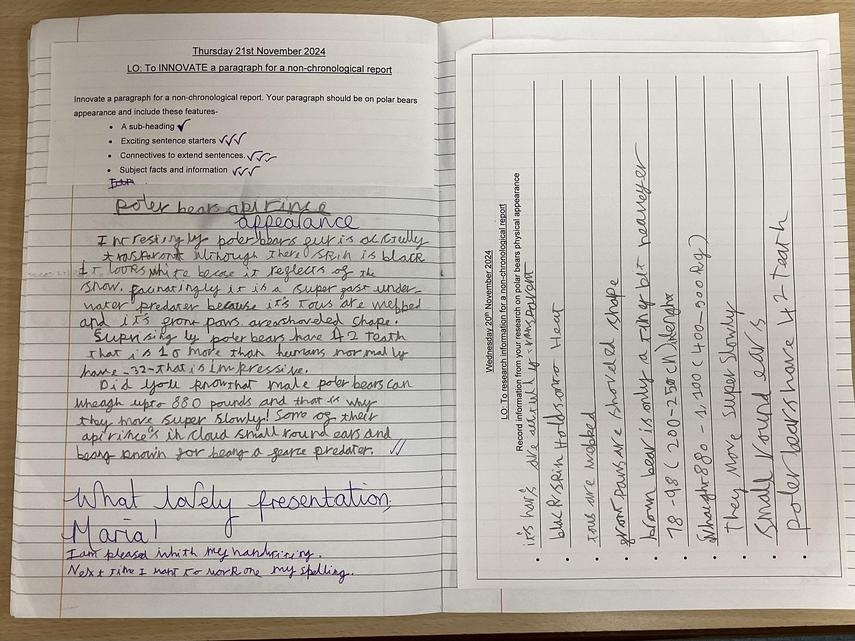 Thursday 21st November 2024
LO: To INNOVATE a paragraph for a non-chronological report
Innovate a paragraph for a non-chronological report. Your paragraph should be on polar bears
appearance and include these features-
• A sub-heading ✓
• Exciting sentence starters ✓✓✓
• Connectives to extend sentences. ✓✓✓
• Subject facts and information ✓✓✓
poler bears apirince
appearance
Intrestingly poler bears fur is acictully
transparant although there skin is black
It looks white becose it reflects of the
snow. facinatingly it is a super fast under-
water predater because it's tous are webbed
and it's front paws are shoveled shape.
Suprisingly poler bears have 42 teath
that is 10 more than humans normally
have -32- that is impressive.
Did you know that male poler bears can
wheagh upto 880 pounds and that is why
they move super slowly! Some of their
apirince is in cloud small round ears and
being known for being a fearce predater. ✓✓
What lovely presentation,
Maria!
I am pleased whith my handwriting.
Next time I want to work one my spelling.
Wednesday 20th November 2024
LO: To research information for a non-chronological report
Record information from your research on polar bears physical appearance
• it's hair's are actually transparent
• black skin Holds onto Heat
• tous are webbed
• front paws are shoveled shape
• brown bear is only a tiny bit heaveyer
• 78-98 (200-250cm) length
• Whaight 880-1,100 (400-500kg)
• they move super slowly
• small round ears
• poler bears have 42 Teath